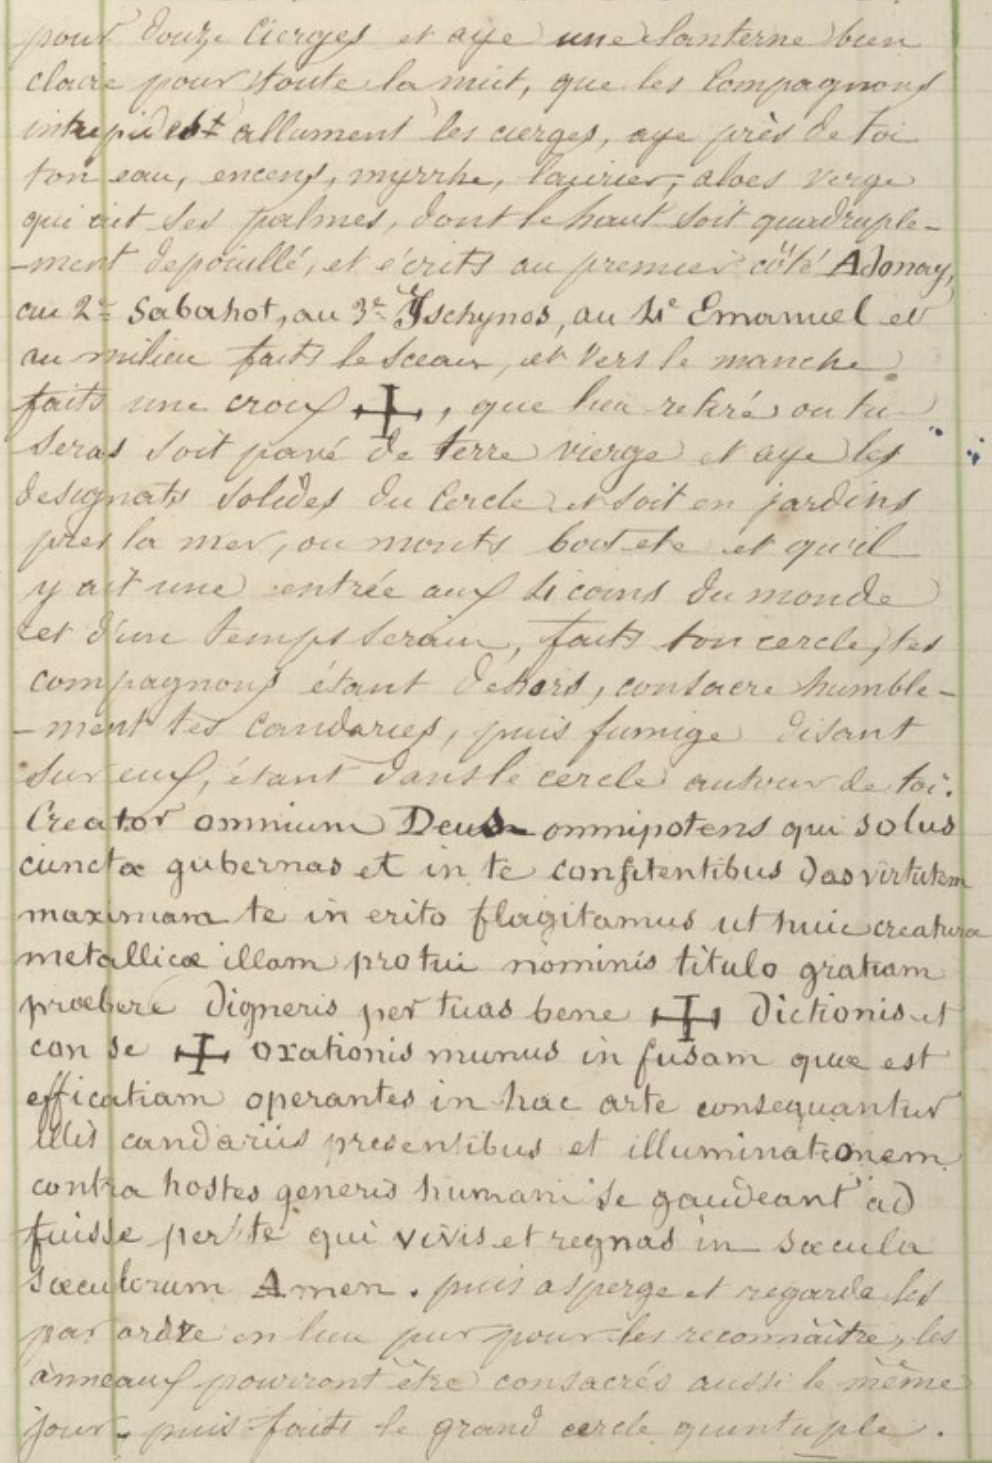 pour douze Cierges et aye une lanterne bien
claire pour toute la nuit, que les Compagnons
intrepides allument les cierges, aye près de toi
ton eau, encens, myrrhe, laurier, aloes verge
qui ait ses palmes, dont le haut soit quadruple-
-ment depouillé, et écrits au premier côté Adonay,
au 2e Sabahot, au 3e Ischynos, au 4e Emanuel et
au milieu faits le Sceau, et vers le manche
faits une croix ✠, que lieu retiré ou tu
seras soit pavé de terre vierge et aye les
designats solides du Cercle et soit en jardins
pres la mer, ou monts bois etc et qu'il
y ait une entrée aux 4 coins du monde
et d'un temps serain, faits ton cercle, tes
compagnons étant dehors, consacre humble-
-ment tes Candaries, puis fumige disant
sur eux, étant dans le cercle autour de toi.
Creator omnium Deus omnipotens qui solus
cuncta gubernas et in te confitentibus das virtutem
maximam te in erito flagitamus ut huic creaturæ
metallicæ illam pro tui nominis titulo gratiam
præbere digneris per tuas bene ✠ dictionis et
con se ✠ orationis munus in fusam quæ est
efficatiam operantes in hac arte consequantur
illis candariis presentibus et illuminationem
contra hostes generis humani se gaudeant ad
fuisse per te qui vivis et regnas in sæcula
sæculorum Amen. puis asperge et regarde les
par ordre en lieu pur pour les reconnaître, les
anneaux pourront être consacrés aussi le même
jour, puis faits le grand cercle quintuple.